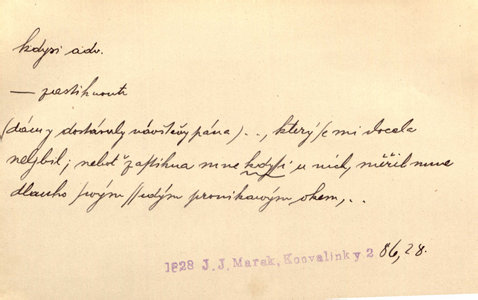 kdysi adv.
— zastihnouti
(dámy dostávaly návštěvy pána) . . , který se mi docela
nelíbil; neboť zastihna mne kdysi u nich, měřil mne
dlouho svým šedým pronikavým okem, . .
1828 J. J. Marek, Konvalinky 2 86, 28.